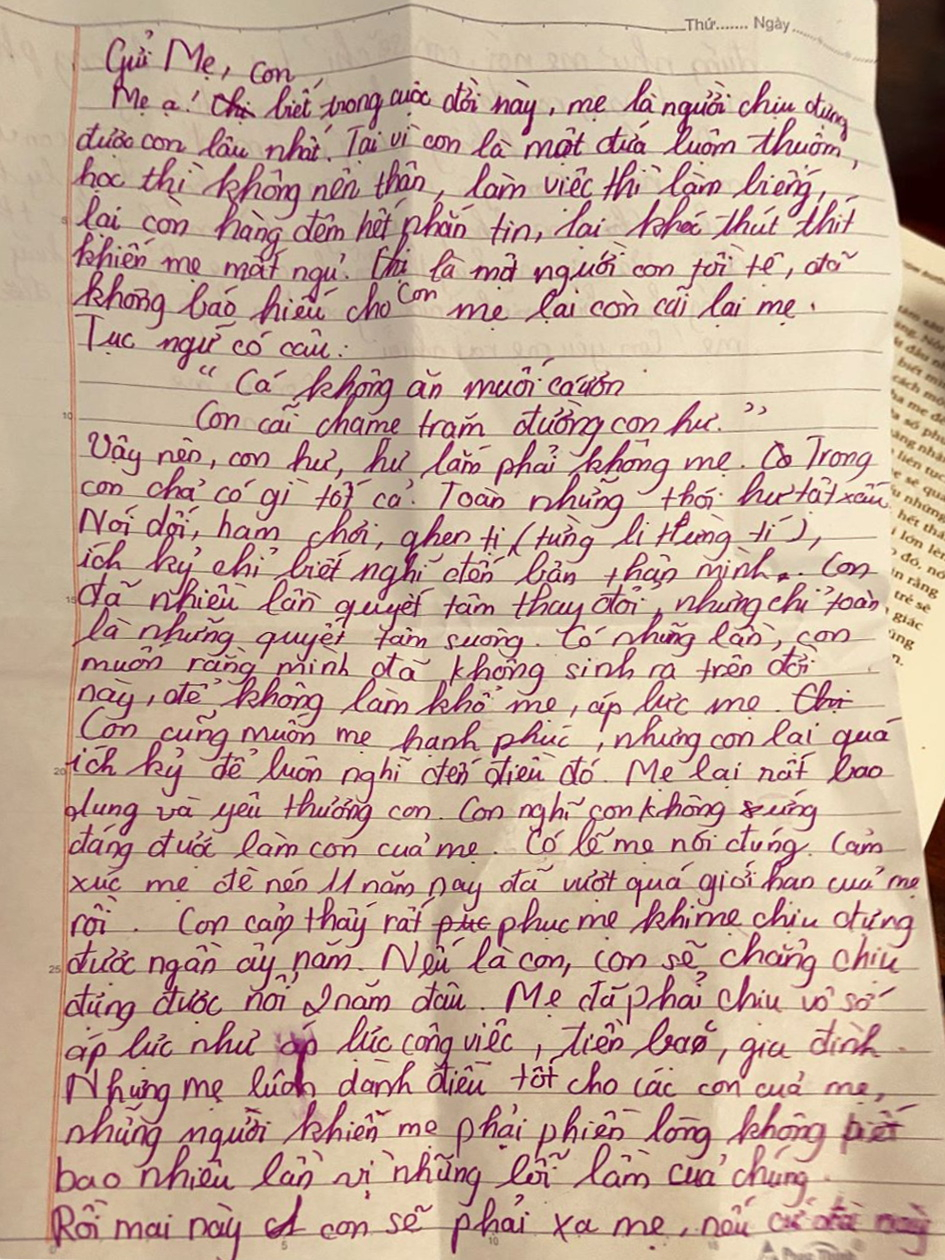 Thứ....... Ngày..........
Gửi Mẹ, con
Mẹ ạ! biết trong cuộc đời này, mẹ là người chịu đựng
được con lâu nhất. Tại vì con là một đứa luộm thuộm,
học thì không nên thân, làm việc thì làm biếng,
lại con hàng đêm hết nhắn tin, lại khóc thút thít
khiến mẹ mất ngủ. là một người con tồi tệ, đã
không báo hiếu cho con mẹ lại còn cãi lại mẹ.
Tục ngữ có câu:
“ Cá không ăn muối cá ươn
Con cãi cha mẹ trăm đường con hư. ”
Vậy nên, con hư, hư lắm phải không mẹ. Trong
con chả có gì tốt cả. Toàn những thói hư tật xấu
Nói dối, ham chơi, ghen tị (từng li từng tí),
ích kỷ chỉ biết nghĩ đến bản thân mình.. Con
đã nhiều lần quyết tâm thay đổi, nhưng chỉ toàn
là những quyết tâm suông. Có những lần, con
muốn rằng mình đã không sinh ra trên đời
này, để không làm khổ mẹ, áp lực mẹ. Chị
Con cũng muốn mẹ hạnh phúc, nhưng con lại quá
ích kỷ để luôn nghĩ đến điều đó. Mẹ lại rất bao
dung và yêu thương con. Con nghĩ con không xứng
đáng được làm con của mẹ. Có lẽ mẹ nói đúng. Cảm
xúc mẹ đè nén 11 năm nay đã vượt quá giới hạn của mẹ
rồi. Con cảm thấy rất phục mẹ khi mẹ chịu đựng
được ngần ấy năm. Nếu là con, con sẽ chẳng chịu
đựng được nổi 2 năm đâu. Mẹ đã phải chịu vô số
áp lực như áp lực công việc, tiền bạc, gia đình.
Nhưng mẹ luôn dành điều tốt cho các con của mẹ,
những người khiến mẹ phải phiền lòng không biết
bao nhiêu lần vì những lỗi lầm của chúng.
Rồi mai này con sẽ phải xa mẹ, nếu cứ đà này